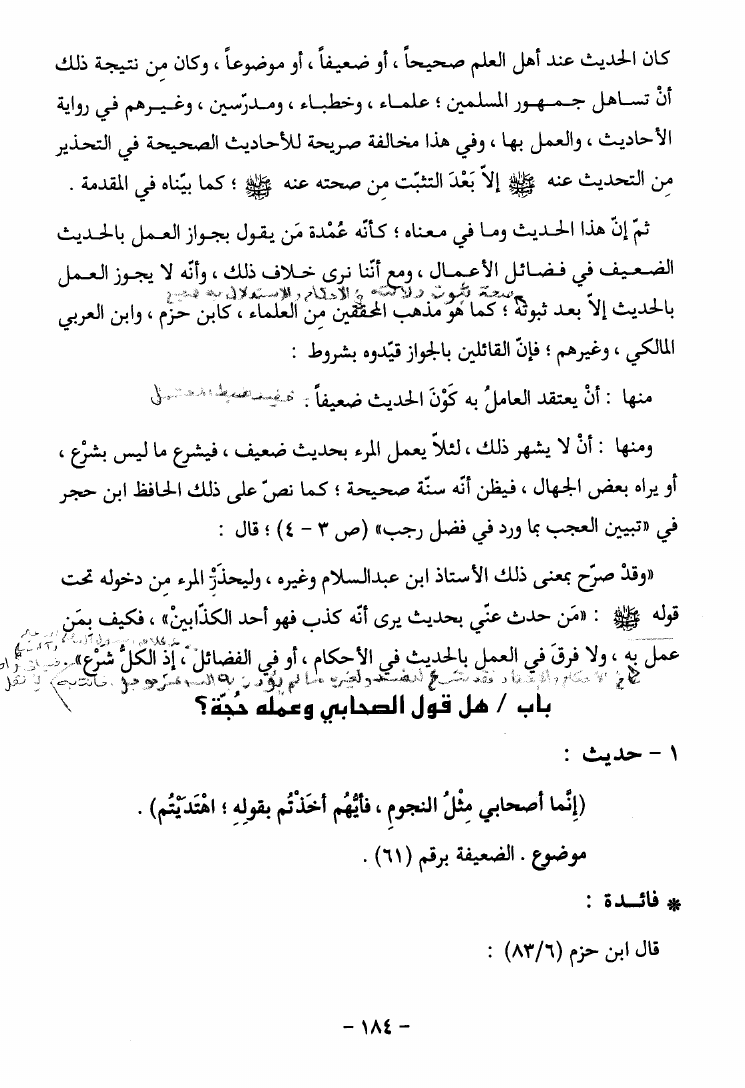 كان الحديث عند أهل العلم صحيحاً ، أو ضعيفاً ، أو موضوعاً ، وكان مِن نتيجة ذلك
أنْ تساهل جمهور المسلمين ؛ علماء ، وخطباء ، ومدرّسين ، وغيرهم في رواية
الأحاديث ، والعمل بها ، وفي هذا مخالفة صريحة للأحاديث الصحيحة في التحذير
مِن التحديث عنه ﷺ إلاّ بَعْدَ التثبّت مِن صحته عنه ﷺ ؛ كما بيّناه في المقدمة .
ثمّ إنّ هذا الحديث وما في معناه ؛ كأنّه عُمْدة مَن يقول بجواز العمل بالحديث
الضعيف في فضائل الأعمال ، ومع أنّنا نرى خلاف ذلك ، وأنّه لا يجوز العمل
بالحديث إلاّ بعد ثبوته ؛ كما هو مذهب المحققين مِن العلماء ، كابن حزم ، وابن العربي
المالكي ، وغيرهم ؛ فإنّ القائلين بالجواز قيّدوه بشروط :
منها : أنْ يعتقد العاملُ به كَوْنَ الحديث ضعيفاً .
ومنها : أنْ لا يشهر ذلك ، لئلاّ يعمل المرء بحديث ضعيف ، فيشرع ما ليس بشرْع ،
أو يراه بعض الجهال ، فيظن أنّه سنّة صحيحة ؛ كما نصّ على ذلك الحافظ ابن حجر
في «تبيين العجب بما ورد في فضل رجب» (ص ٣ - ٤) ؛ قال :
«وقدْ صرّح بمعنى ذلك الأستاذ ابن عبدالسلام وغيره ، وليحذَرْ المرء مِن دخوله تحت
قوله ﷺ : «مَن حدث عنّي بحديث يرى أنّه كذب فهو أحد الكذّابينْ» ، فكيف بمَن
عمل به ، ولا فرقَ في العمل بالحديث في الأحكام ، أو في الفضائل ، إذ الكلُّ شرْع»
باب / هل قول الصحابي وعمله حُجّة؟
١ - حديث :
(إنَّما أصحابي مِثْلُ النجومِ ، فأيُّهُم أخَذْتُم بقولِهِ ؛ اهْتَدَيْتُم) .
موضوع . الضعيفة برقم (٦١) .
* فائدة :
قال ابن حزم (٨٣/٦) :
- ١٨٤ -